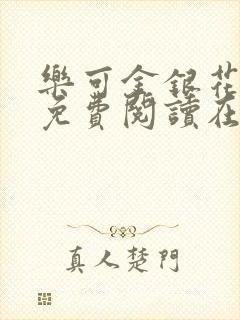 樂可金銀花
免費閱讀在
真人楚門